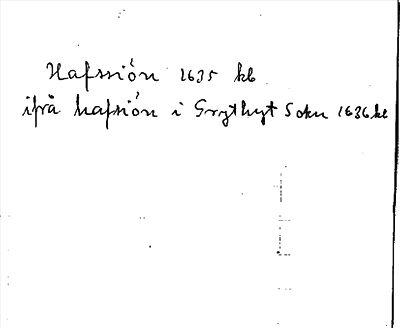 Hafssiön 1635 kb
ifrå hafsiön i Grythyt Soku 1636 kl